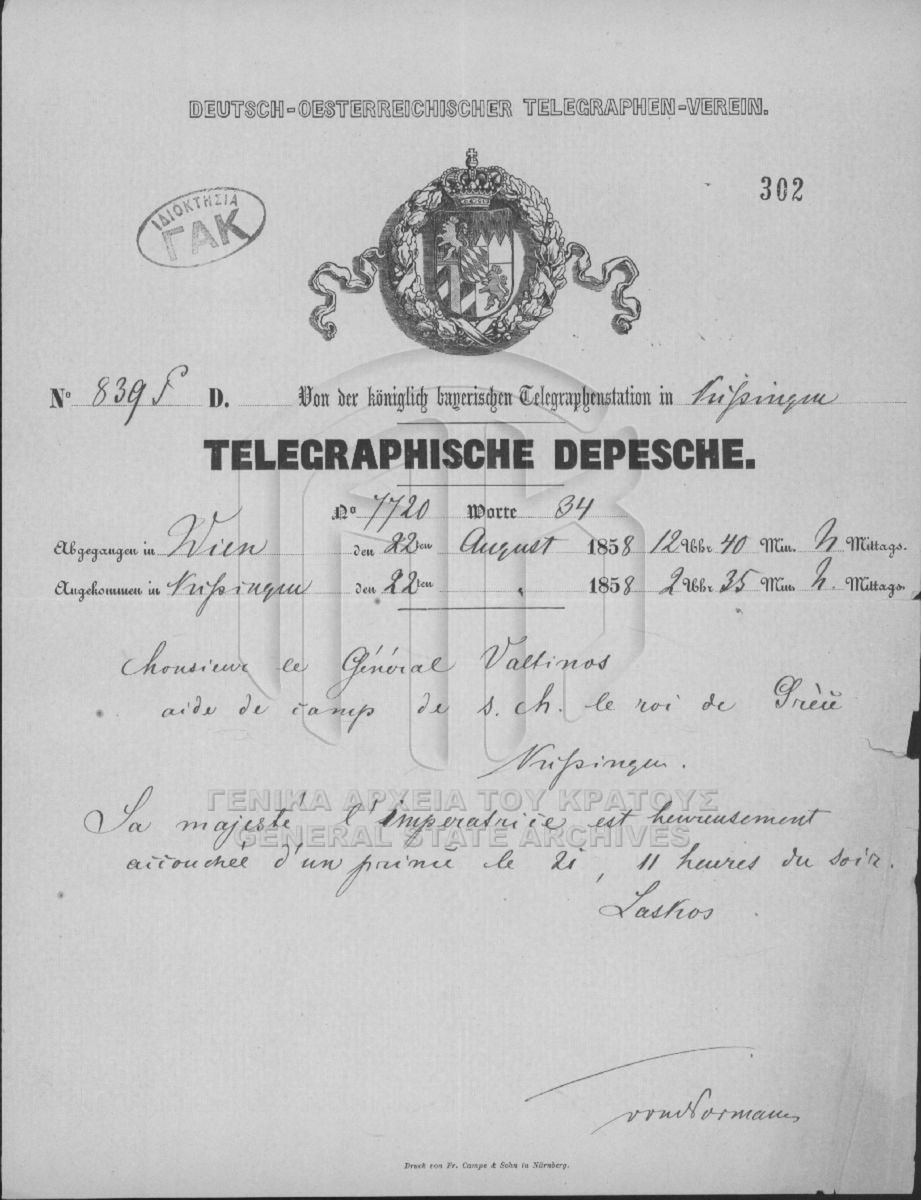 DEUTSCH-OESTERREICHISCHER TELEGRAPHEN-VEREIN.
302
ΙΔΙΟΚΤΗΣΙΑ
ΓΑΚ
No 839 D. Von der königlich bayerischen Telegraphenstation in Kissingen
TELEGRAPHISCHE DEPESCHE.
No 7720 Worte 34
Abgegangen in Wien den 22ten August 1858 12 Uhr 40 Min. N Mittags.
Angekommen in Kissingen den 22ten " 1858 2 Uhr 35 Min. N. Mittags.
Monsieur le Général Valtinos
aide de camp de s. M. le roi de Grèce
Kissingen.
ΓΕΝΙΚΑ ΑΡΧΕΙΑ ΤΟΥ ΚΡΑΤΟΥΣ
Sa majesté l'imperatrice est heureusement
GENERAL STATE ARCHIVES
accouchée d'un prince le 21, 11 heures du soir.
Laskos
Druck von Fr. Campe & Sohn in Nürnberg.